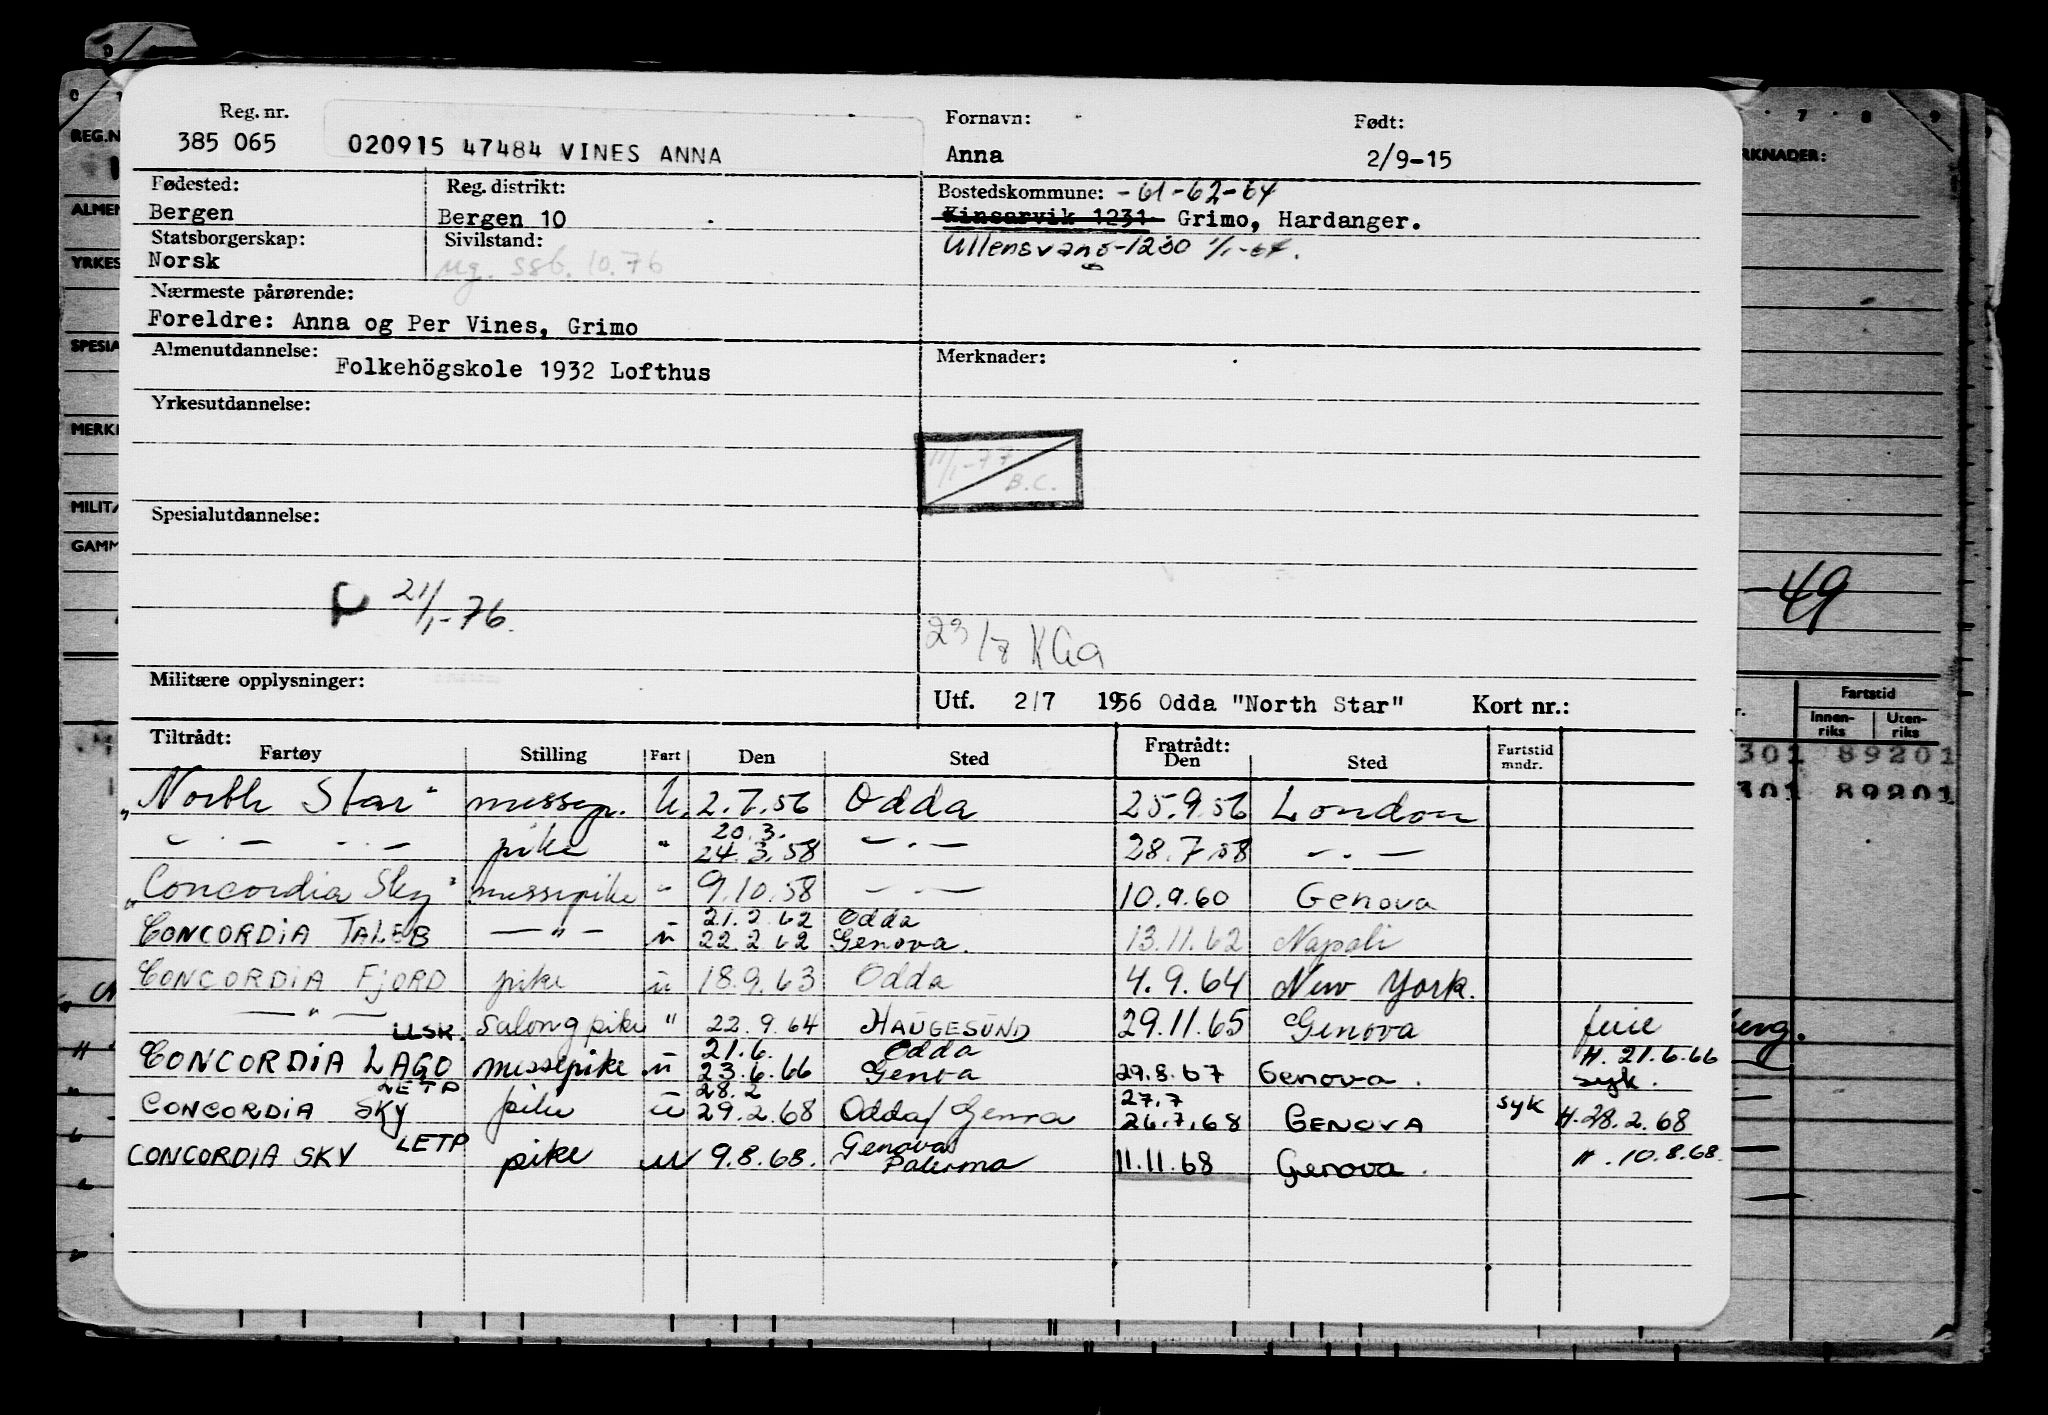 Reg. nr. Fornavn: Født:
385 065 020915 47484 VINES ANNA Anna 2/9-15
Fødested: Reg. distrikt: Bostedskommune: -61-62-64
Bergen Bergen 10 Kinsarvik 1231 Grimo, Hardanger.
Statsborgerskap: Sivilstand: Ullensvang-1230 1/1-64.
Norsk ug. ssb. 10.76
Nærmeste pårørende:
Foreldre: Anna og Per Vines, Grimo
Almenutdannelse: Merknader:
Folkehögskole 1932 Lofthus
Yrkesutdannelse:
11/1-77 B.C.
Spesialutdannelse:
21/1-76.
23/7 KGa
Militære opplysninger:
Utf. 2/7 1956 Odda "North Star" Kort nr.:
Tiltrådt: Fratrådt:
Fartøy Stilling Fart Den Sted Den Sted Fartstid mndr.
"North Star" messep. U. 2.7.56 Odda 25.9.56 London
— " — pike " 20.3. 24.3.58 — " — 28.7.58 — " —
"Concordia Sky" messepike " 9.10.58 — " — 10.9.60 Genova
CONCORDIA TALEB — " — u 21.2.62 22.2.62 Odda Genova. 13.11.62 Napoli
CONCORDIA FJORD pike u 18.9.63 Odda 4.9.64 New York.
— " — salongpike " 22.9.64 HAUGESUND 29.11.65 Genova ferie
LLSK. CONCORDIA LAGO messepike u 21.6. 23.6.66 Odda Genoa 29.8.67 Genova. H. 21.6.66 syk.
LETP CONCORDIA SKY pike u 28.2 29.2.68 Odda/Genoa 27.7 26.7.68 GENOVA syk H. 28.2.68
CONCORDIA SKY LETP pike u 9.8.68. Genova Palerma 11.11.68 Genova. H. 10.8.68.
REG.N
ALMEN
YRKES
SPESIA
MERK
MILIT
GAMM
RKNADER:
7 8 9
-49
Fartstid
Innen-riks Uten-riks
301 89201
301 89201
berg.